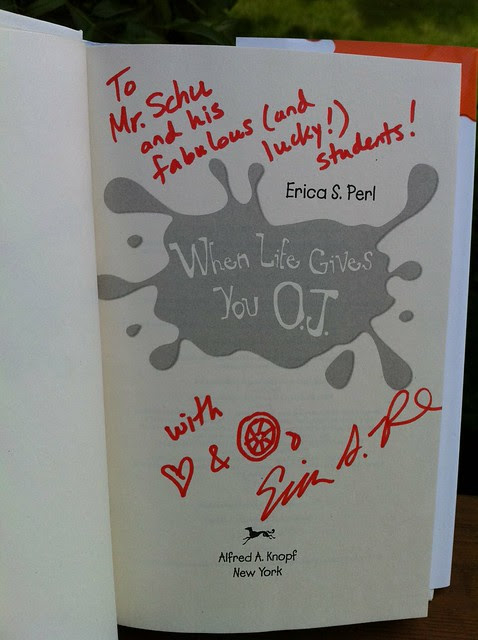 To
Mr. Schu
and his
fabulous (and
lucky!)
students!
Erica S. Perl
When Life Gives
You O.J.
with
&
Erica S. Perl
Alfred A. Knopf
New York